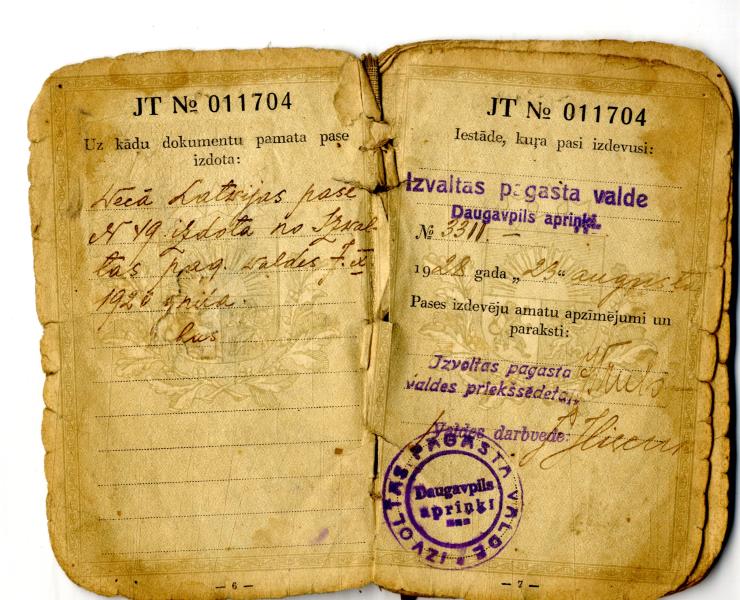 JT № 011704
Uz kādu dokumentu pamata pase
izdota:
Vecā Latvijas pase
N 49 izdota no Izval-
tas pag. valdes 7. IX
1920 g.
JT № 011704
Iestāde, kuŗa pasi izdevusi:
Izvaltas pagasta valde
Daugavpils apriņķī.
№ 3311. —
1928 gada „23“ augusta
Pases izdevēju amatu apzīmējumi un
paraksti:
Izvoltas pagasta
valdes priekšsēdetajs
Valdes darbvede:
IZVOLTAS PAGASTA VALDE
Daugavpils
apriņķī
— 6 —
— 7 —